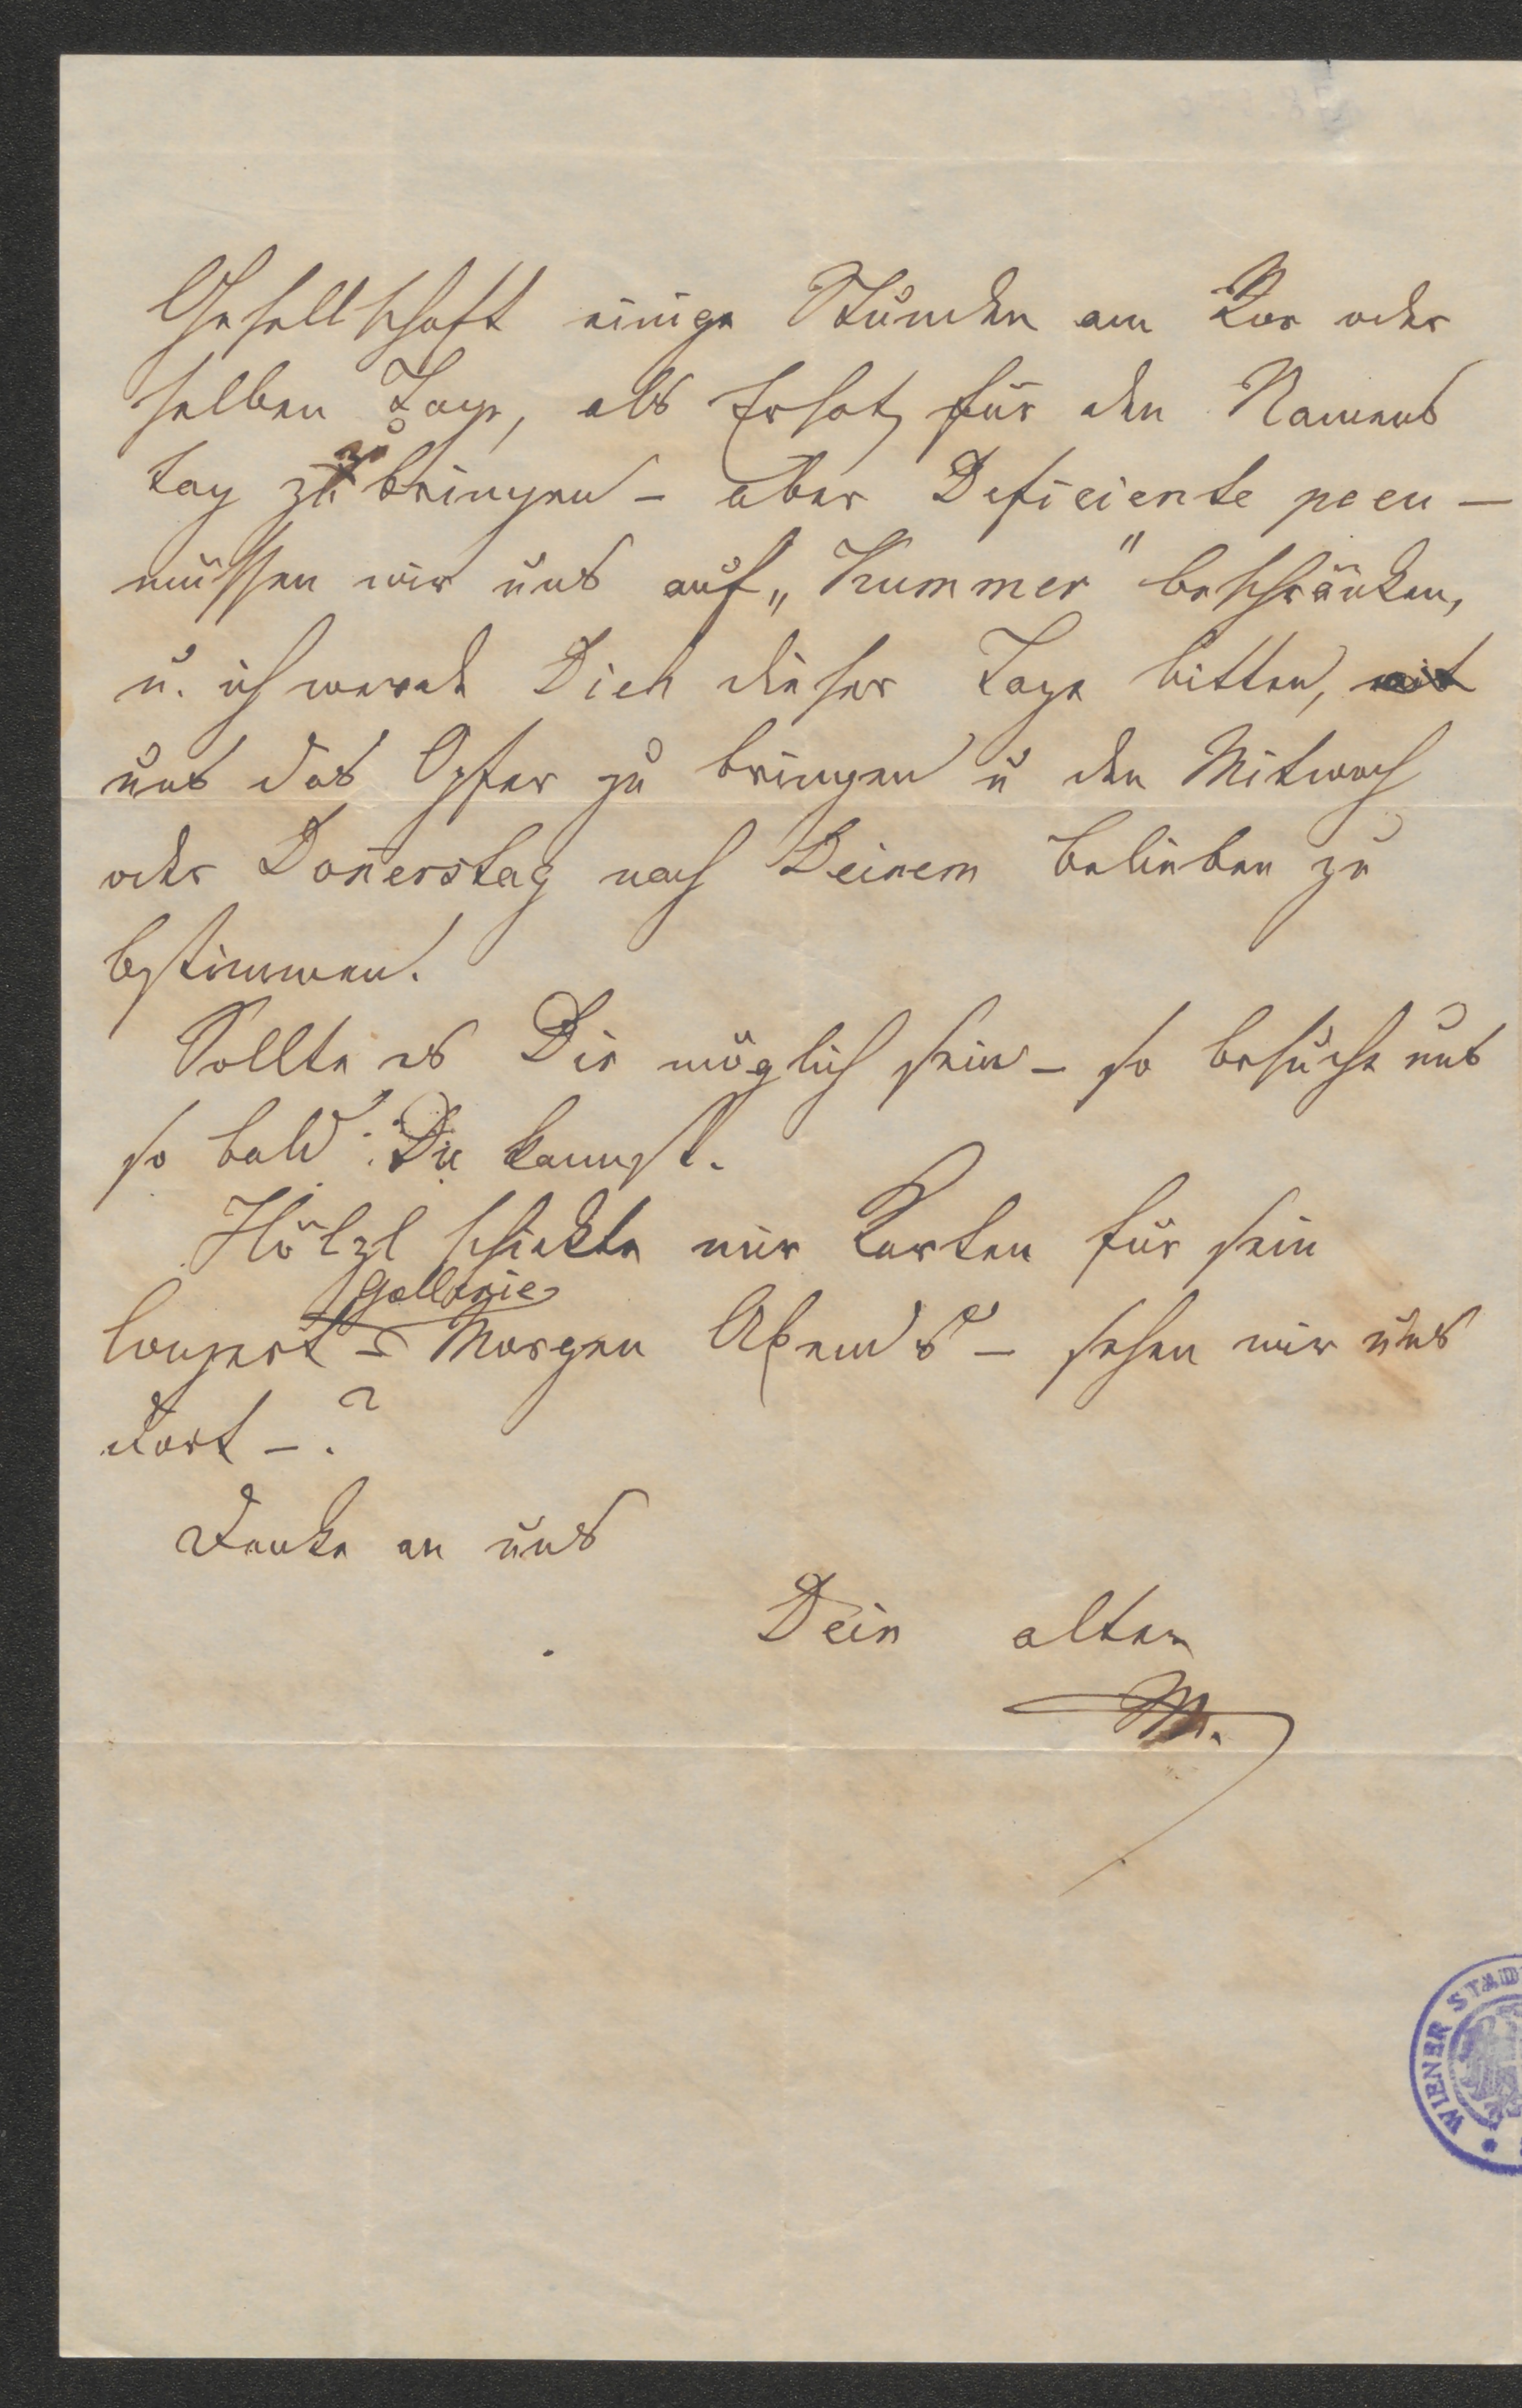 Gesellschaft einige Stunden am Vor oder
selben Tage, als Ersatz für den Namens
tag zu bringen – aber Deficiente pecu –
müssen wir uns auf „Kummer" beschränken,
u. ich werde Dich dieser Tage bitten, mit
uns das Opfer zu bringen u den Mitwoch
oder Doñerstag nach Deinem Belieben zu
bestimmen.
Sollte es Dir möglich sein – so besuche uns
so bald Du kannst.
Hölzl schickte mir Karten für sein
Gallerie
Conzert – Morgen Abends – sehen wir uns
dort – ?
Denke an uns
Dein alter
M.
WIENER STAD